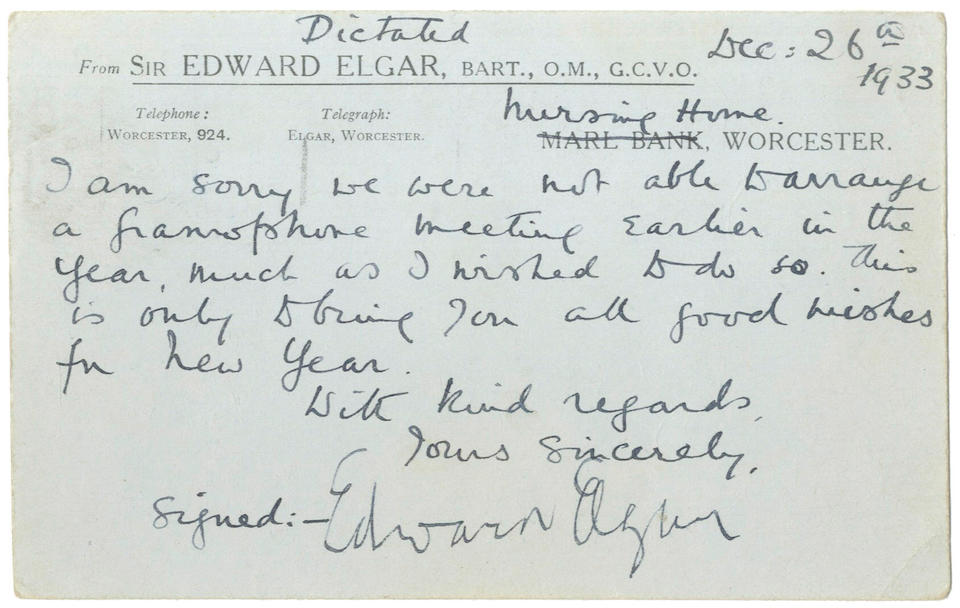 Dictated
Dec: 26th
1933
From SIR EDWARD ELGAR, BART., O.M., G.C.V.O.
Telephone: WORCESTER, 924.
Telegraph: ELGAR, WORCESTER.
Nursing Home.
MARL BANK, WORCESTER.
I am sorry we were not able to arrange
a gramophone meeting earlier in the
Year, much as I wished to do so. This
is only to bring you all good wishes
for New Year.
With kind regards,
Yours sincerely,
Signed:- Edward Elgar